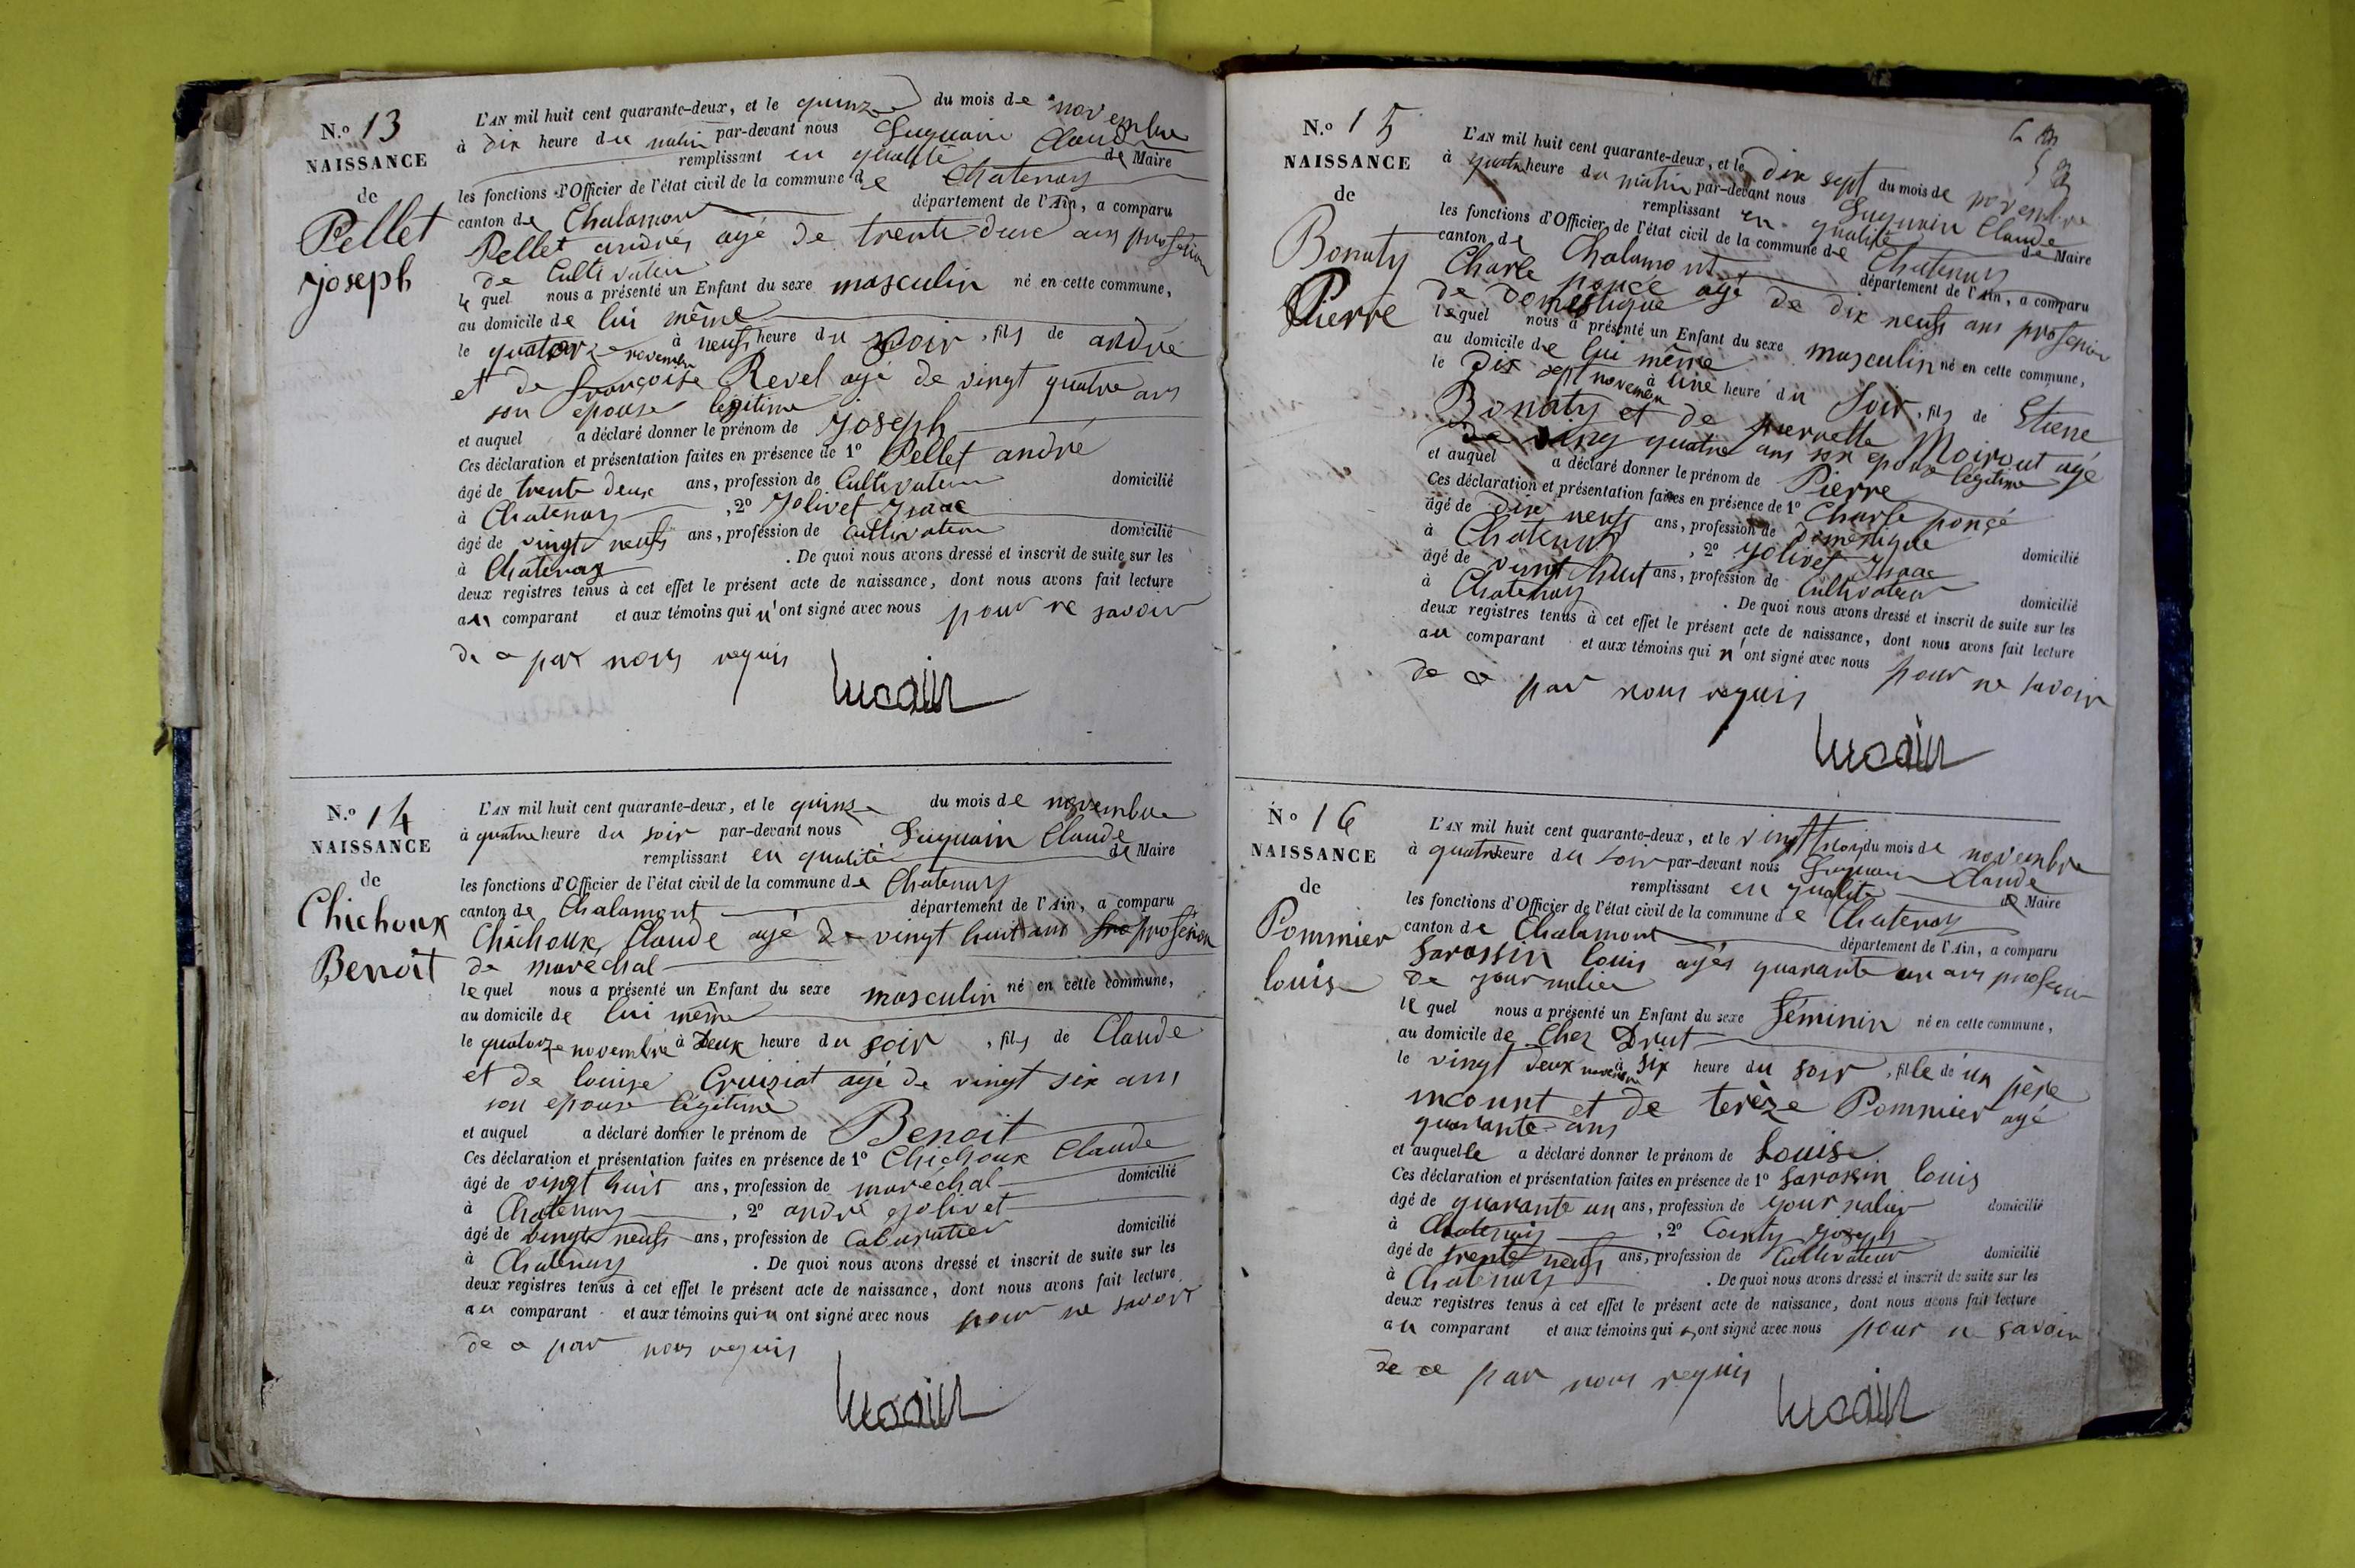 N.o 13
NAISSANCE
de
Pellet
joseph
L'AN mil huit cent quarante-deux, et le quinze du mois de novembre
à dix heure du matin par-devant nous Luquain Claude
remplissant en qualité de Maire
les fonctions d'Officier de l'état civil de la commune de Chatenay
canton de Chalamont département de l'Ain, a comparu
Pellet andrés agé de trente deux ans profesion
de Cultivateur
le quel nous a présenté un Enfant du sexe masculin né en cette commune,
au domicile de lui même
le quatorze novembre à neufs heure du soir, fils de andré
et de françoise Revel agé de vingt quatre ans
son epouse légitime
et auquel a déclaré donner le prénom de Joseph
Ces déclaration et présentation faites en présence de 1o Pellet andré
âgé de trente deux ans, profession de Cultivateur domicilié
à Chatenay, 2o Jolivet Isaac
âgé de vingt neufs ans, profession de Cultivateur domicilié
à Chatenay. De quoi nous avons dressé et inscrit de suite sur les
deux registres tenus à cet effet le présent acte de naissance, dont nous avons fait lecture
au comparant et aux témoins qui n'ont signé avec nous pour ne savoir
de ce par nous requis
N.o 14
NAISSANCE
de
Chichoux
Benoit
L'AN mil huit cent quarante-deux, et le quinze du mois de novembre
à quatre heure du soir par-devant nous Luquain Claude
remplissant en qualité de Maire
les fonctions d'Officier de l'état civil de la commune de Chatenay
canton de Chalamont département de l'Ain, a comparu
Chichoux Claude agé de vingt huit ans profesion
de maréchal
le quel nous a présenté un Enfant du sexe masculin né en cette commune,
au domicile de lui même
le quatorze novembre à Deux heure du soir, fils de Claude
et de louise Cruiziat agé de vingt six ans
son epouse légitime
et auquel a déclaré donner le prénom de Benoit
Ces déclaration et présentation faites en présence de 1o Chichoux Claude
âgé de vingt huit ans, profession de maréchal domicilié
à Chatenay, 2o andré jolivet
âgé de vingt neufs ans, profession de Cabaratier domicilié
à Chatenay. De quoi nous avons dressé et inscrit de suite sur les
deux registres tenus à cet effet le présent acte de naissance, dont nous avons fait lecture
au comparant et aux témoins qui n ont signé avec nous pour ne savoir
de ce par nous requis
N.o 15
NAISSANCE
de
Bonaty
Pierre
L'AN mil huit cent quarante-deux, et le dix sept du mois de novembre
à quatre heure du matin par-devant nous Luquain Claude
remplissant en qualité de Maire
les fonctions d'Officier de l'état civil de la commune de Chatenay
canton de Chalamont département de l'Ain, a comparu
Charle poncé agé de dix neufs ans profesion
de Domestique
le quel nous a présenté un Enfant du sexe masculin né en cette commune,
au domicile de lui même
le Dix sept novembre à une heure du Soir, fils de Etiene
Bonaty et de pierrette Moirout agé
de ving quatre ans son epouse légitime
et auquel a déclaré donner le prénom de Pierre
Ces déclaration et présentation faites en présence de 1o Charle poncé
âgé de dix neufs ans, profession de Domestique
à Chatenay, 2o Jolivet Isaac domicilié
âgé de vingt huit ans, profession de Cultivateur
à Chatenay. De quoi nous avons dressé et inscrit de suite sur les domicilié
deux registres tenus à cet effet le présent acte de naissance, dont nous avons fait lecture
au comparant et aux témoins qui n'ont signé avec nous pour ne savoir
de ce par nous requis
No 16
NAISSANCE
de
Pommier
louise
L'AN mil huit cent quarante-deux, et le vingt trois du mois de novembre
à quatre heure du soir par-devant nous Luquain Claude
remplissant en qualité de Maire
les fonctions d'Officier de l'état civil de la commune de Chatenay
canton de Chalamont département de l'Ain, a comparu
Sarassin louis agés quarante un ans profession
de journalier
le quel nous a présenté un Enfant du sexe féminin né en cette commune,
au domicile de Chez Drut
le vingt deux novembre à six heure du soir, fille de un père
inconnt et de terèze Pommier agé
quarante ans
et auquelle a déclaré donner le prénom de Louise
Ces déclaration et présentation faites en présence de 1o Sarassin louis
âgé de quarante un ans, profession de journalier domicilié
à Chatenay, 2o Conty joseph
âgé de trente neufs ans, profession de Cultivateur domicilié
à Chatenay. De quoi nous avons dressé et inscrit de suite sur les
deux registres tenus à cet effet le présent acte de naissance, dont nous avons fait lecture
au comparant et aux témoins qui n ont signé avec nous pour ne savoir
de ce par nous requis